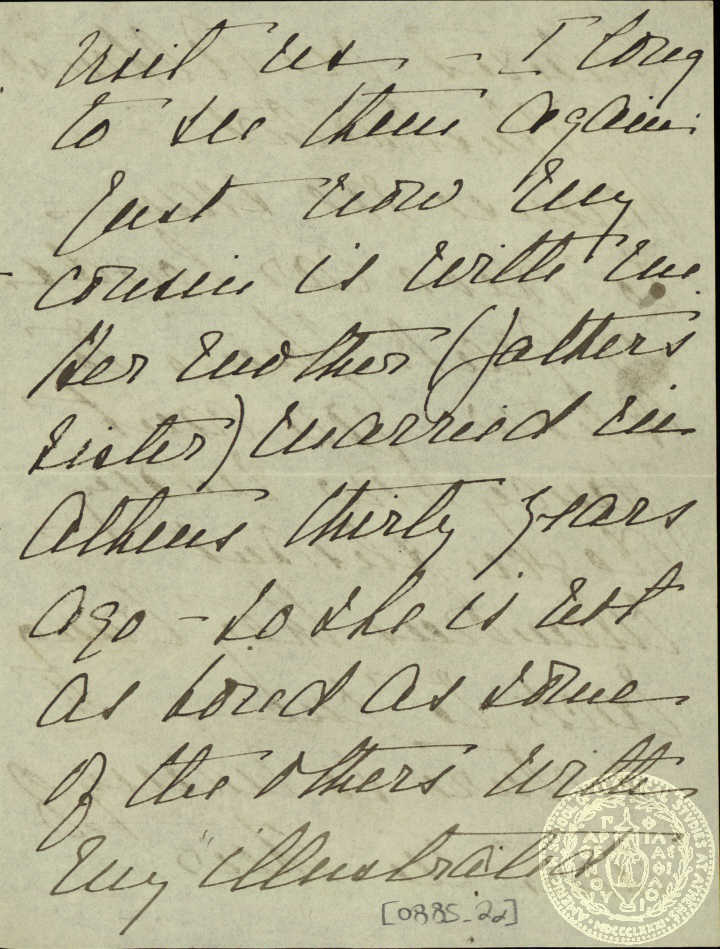 visit us - I long
to see them again.
Just now my
cousin is with me.
Her mother (fathers
sister) married in
Athens thirty years
ago - so she is not
as bored as some
of the others with
my "illustrated
[0885_22]